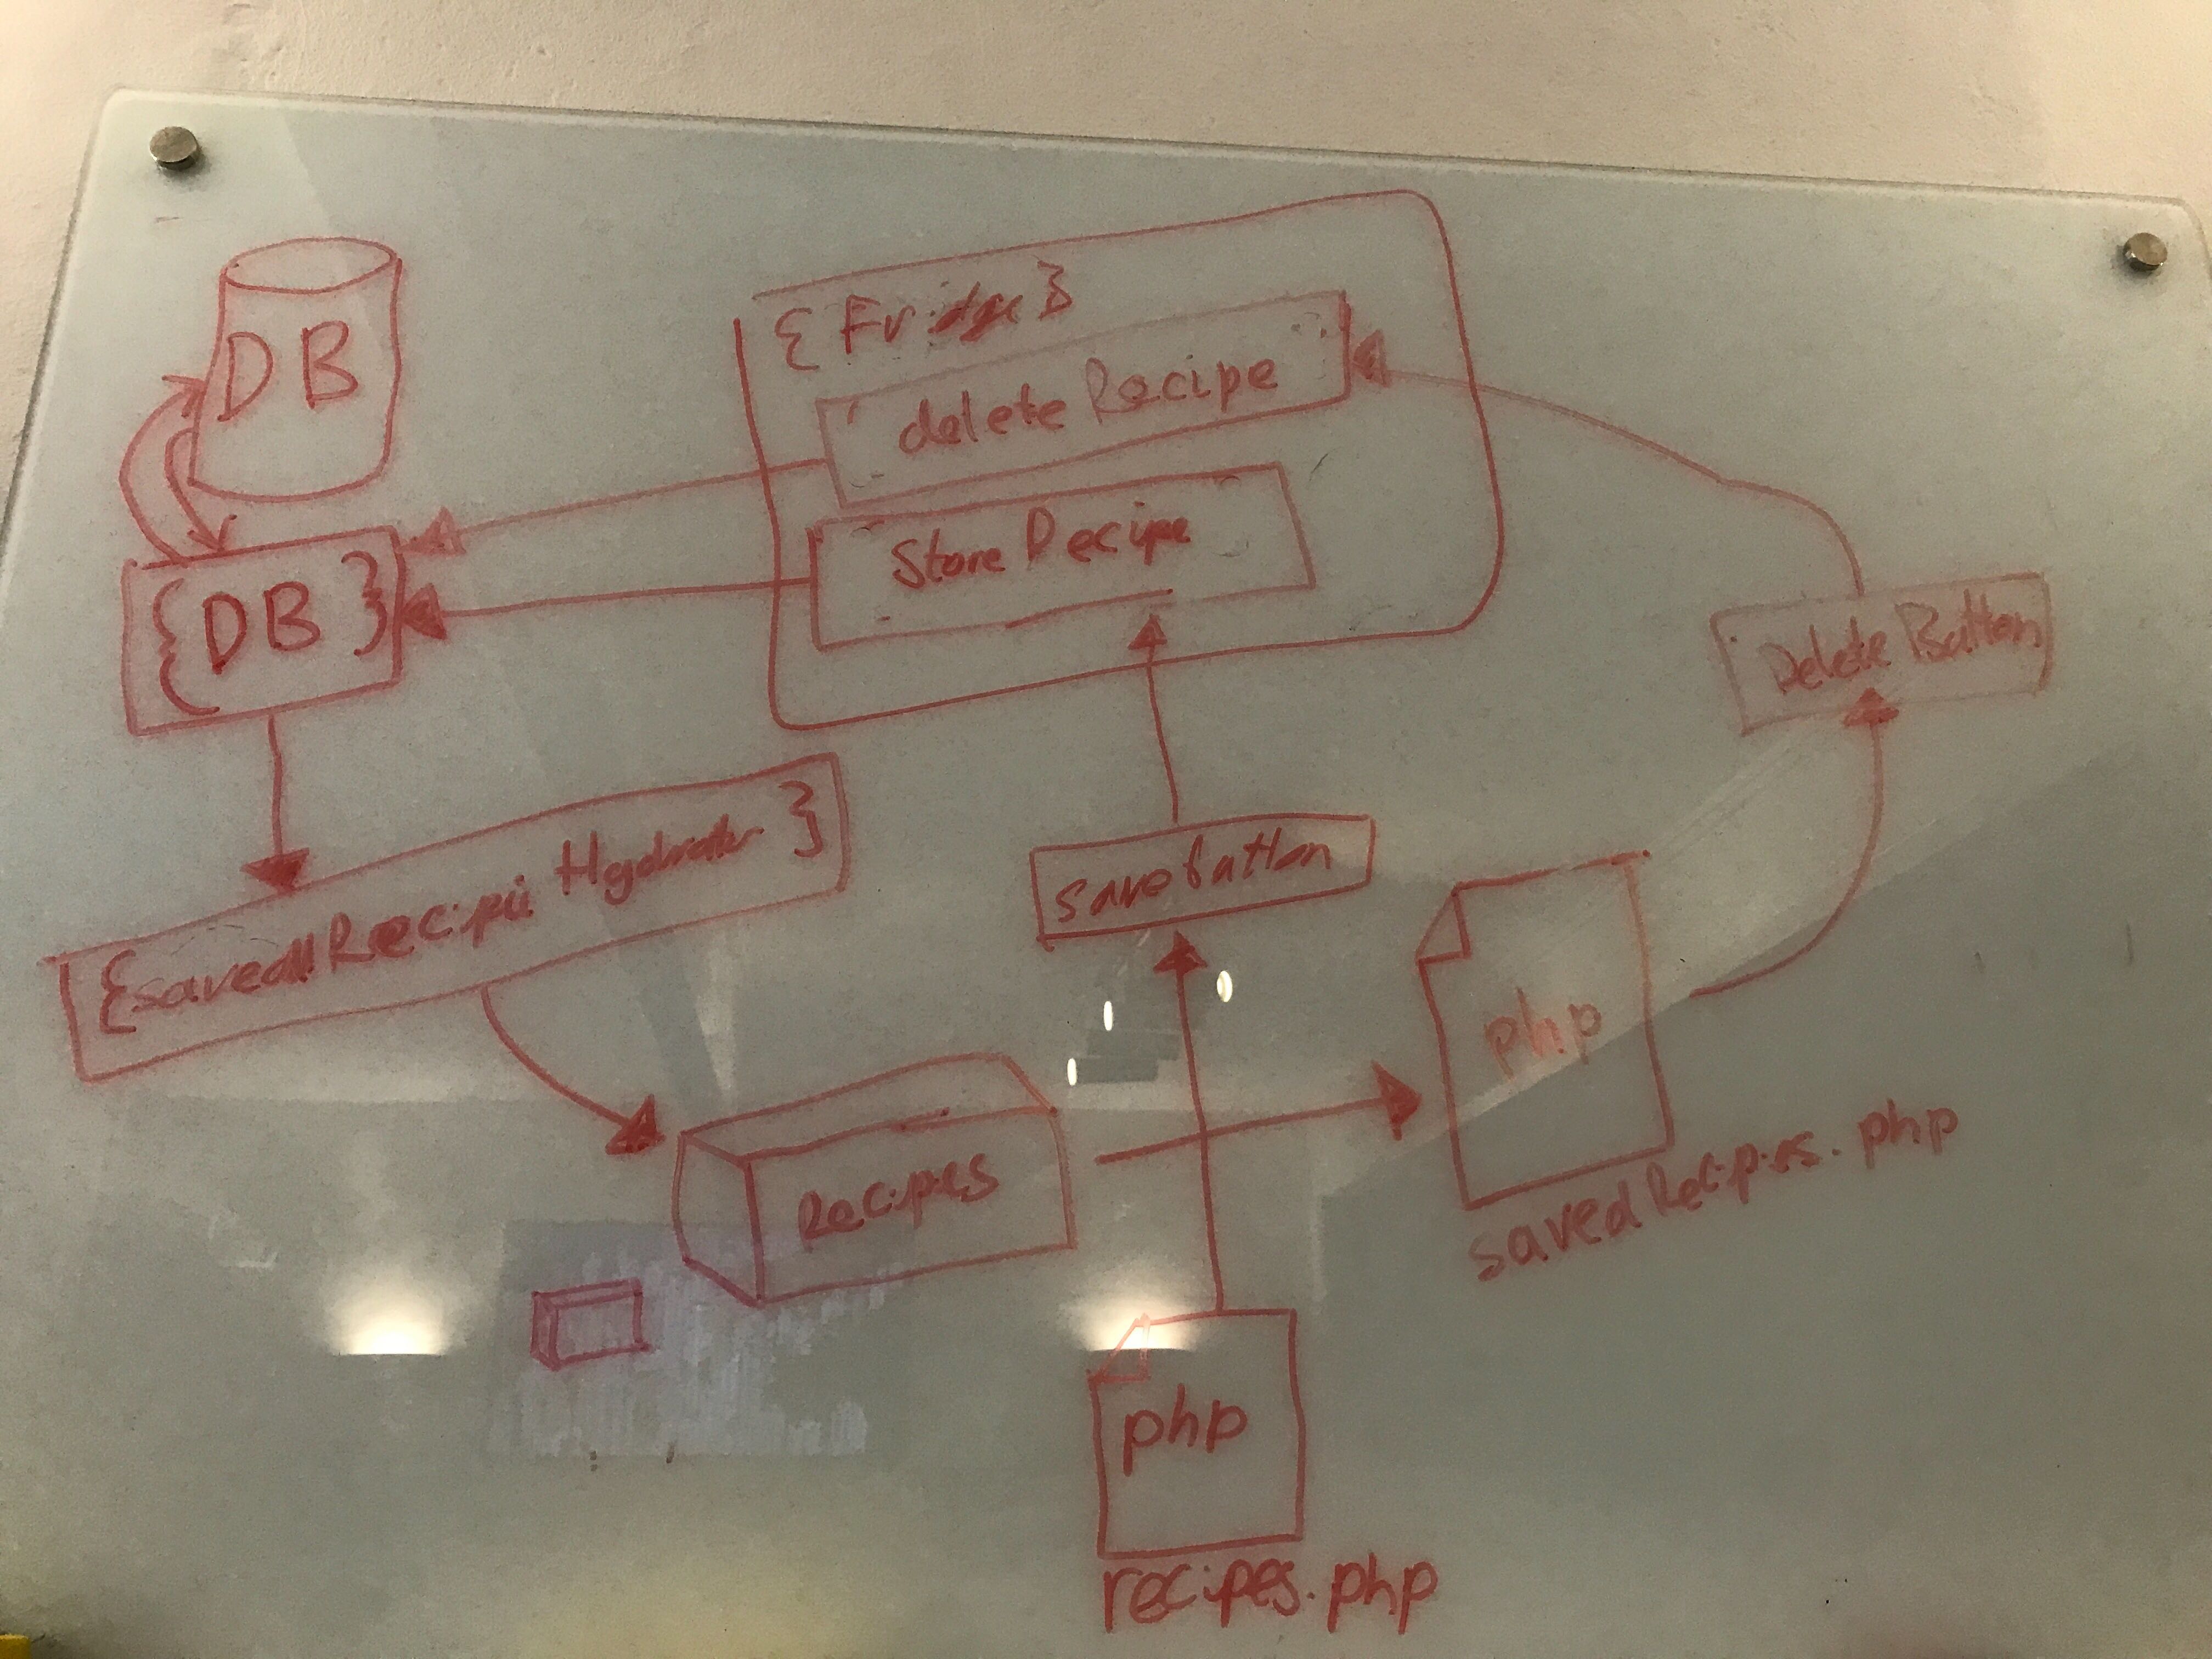 DB
{ Fridge }
deleteRecipe
Store Recipe
{ DB }
Delete Button
{savedRecipe Hydrator }
save button
php
savedRecipes.php
Recipes
php
recipes.php